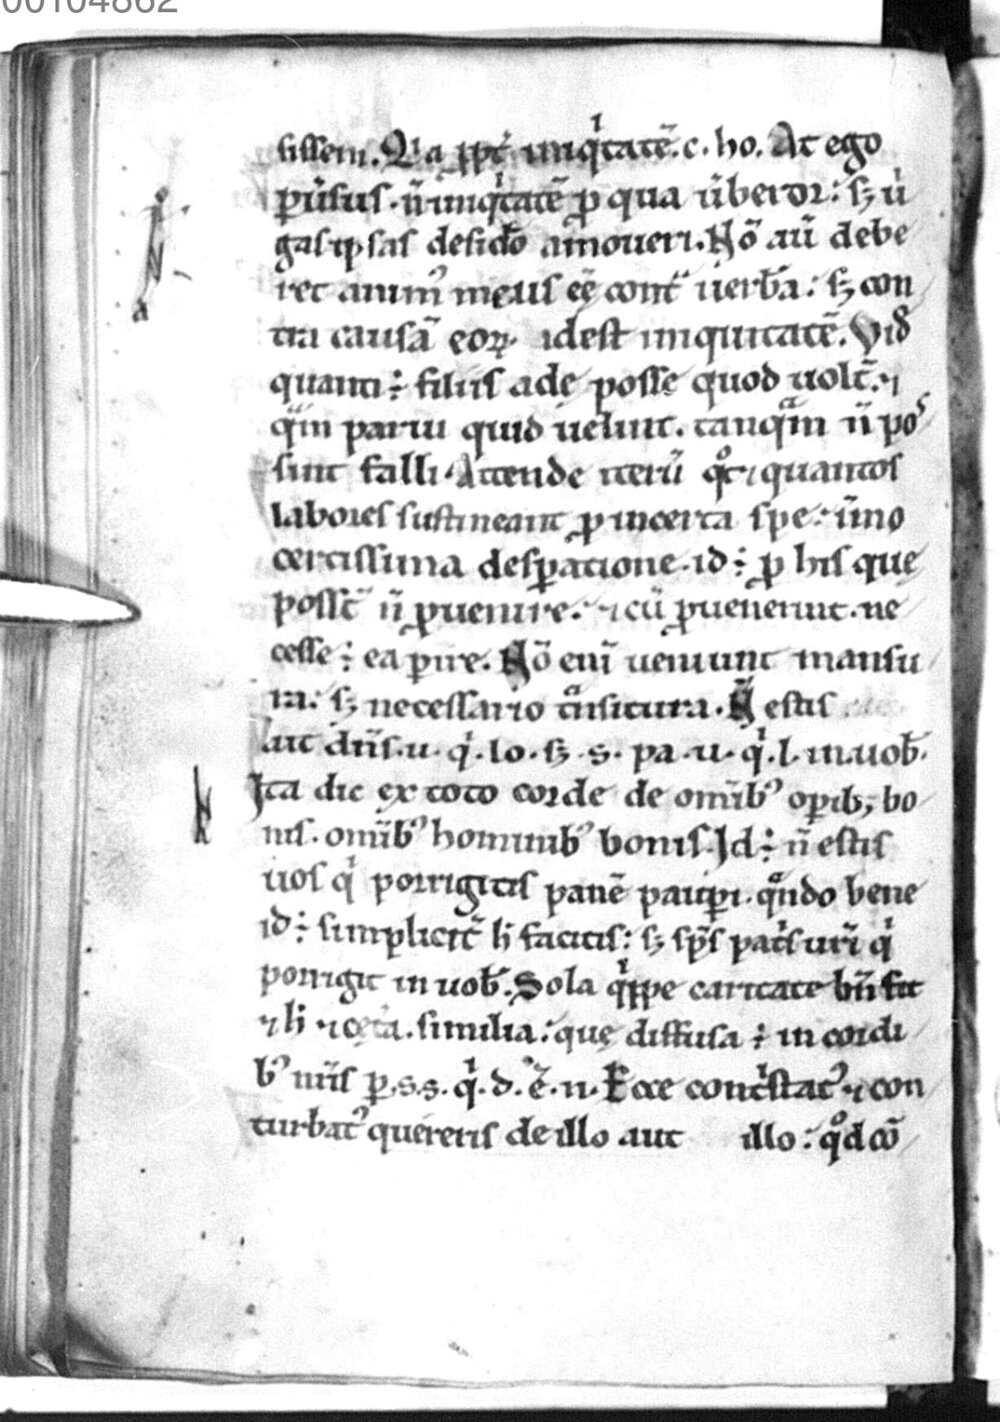 00104862
sissem. Q̄a ꝓpt̄ iniqͥtatē. c. ho. At ego
ꝑūsus. n̄ iniqͥtatē ꝓ qua ūberor: sꝫ ů
gas ipsas desidō amoueri. Nō aū debe
ret animꝰ meus eē cont̄ uerba: sꝫ con
tra causā eoꝝ. idest iniquitatē. Vid̄
quanti ÷ filiis adę posse quod uolt̄. ⁊
qͣm paruı quid uelint. tanqͣm n̄ poſ
sint falli. Attende iterū qͦt ⁊ quantos
labores sustineant ꝓ incerta spe: im̄o
certissima desꝑatione. id ÷ ꝓ his quę
possē n̄ ꝓuenire: ⁊ cū ꝓuenerint. ne
cesse ÷ ea ꝑire. Nō eni ueniunt mansu
ra: sꝫ necessario tͣnsitura. N̄ estis
ait dn̄s. u. qͥ. lo. sꝫ. s. pa. u. qͥ. l. in. uob̄.
Ita dic ex toto corde de omībꝰ oꝑibꝫ bo
nis. omībꝰ hominibꝰ bonis. Id ÷ n̄ estis
uos qͥ porrigitis panē pauꝑi. qͣndo bene
id ÷ simplicit̄ h̄ facitis: sꝫ sp̄s patͥs urī qͥ
porrigit in uob̄. Sola qͥppe caritate bn̄ fit
⁊ h̄ ⁊ cęta. similia: quę diffusa ÷ in cordi
bꝰ nr̄is ꝑ. s. s. qͥ. d. ē. n. Ecce contͥstatꝰ ⁊ con
turbatꝰ quereris de illo aut illo: qͦd cō